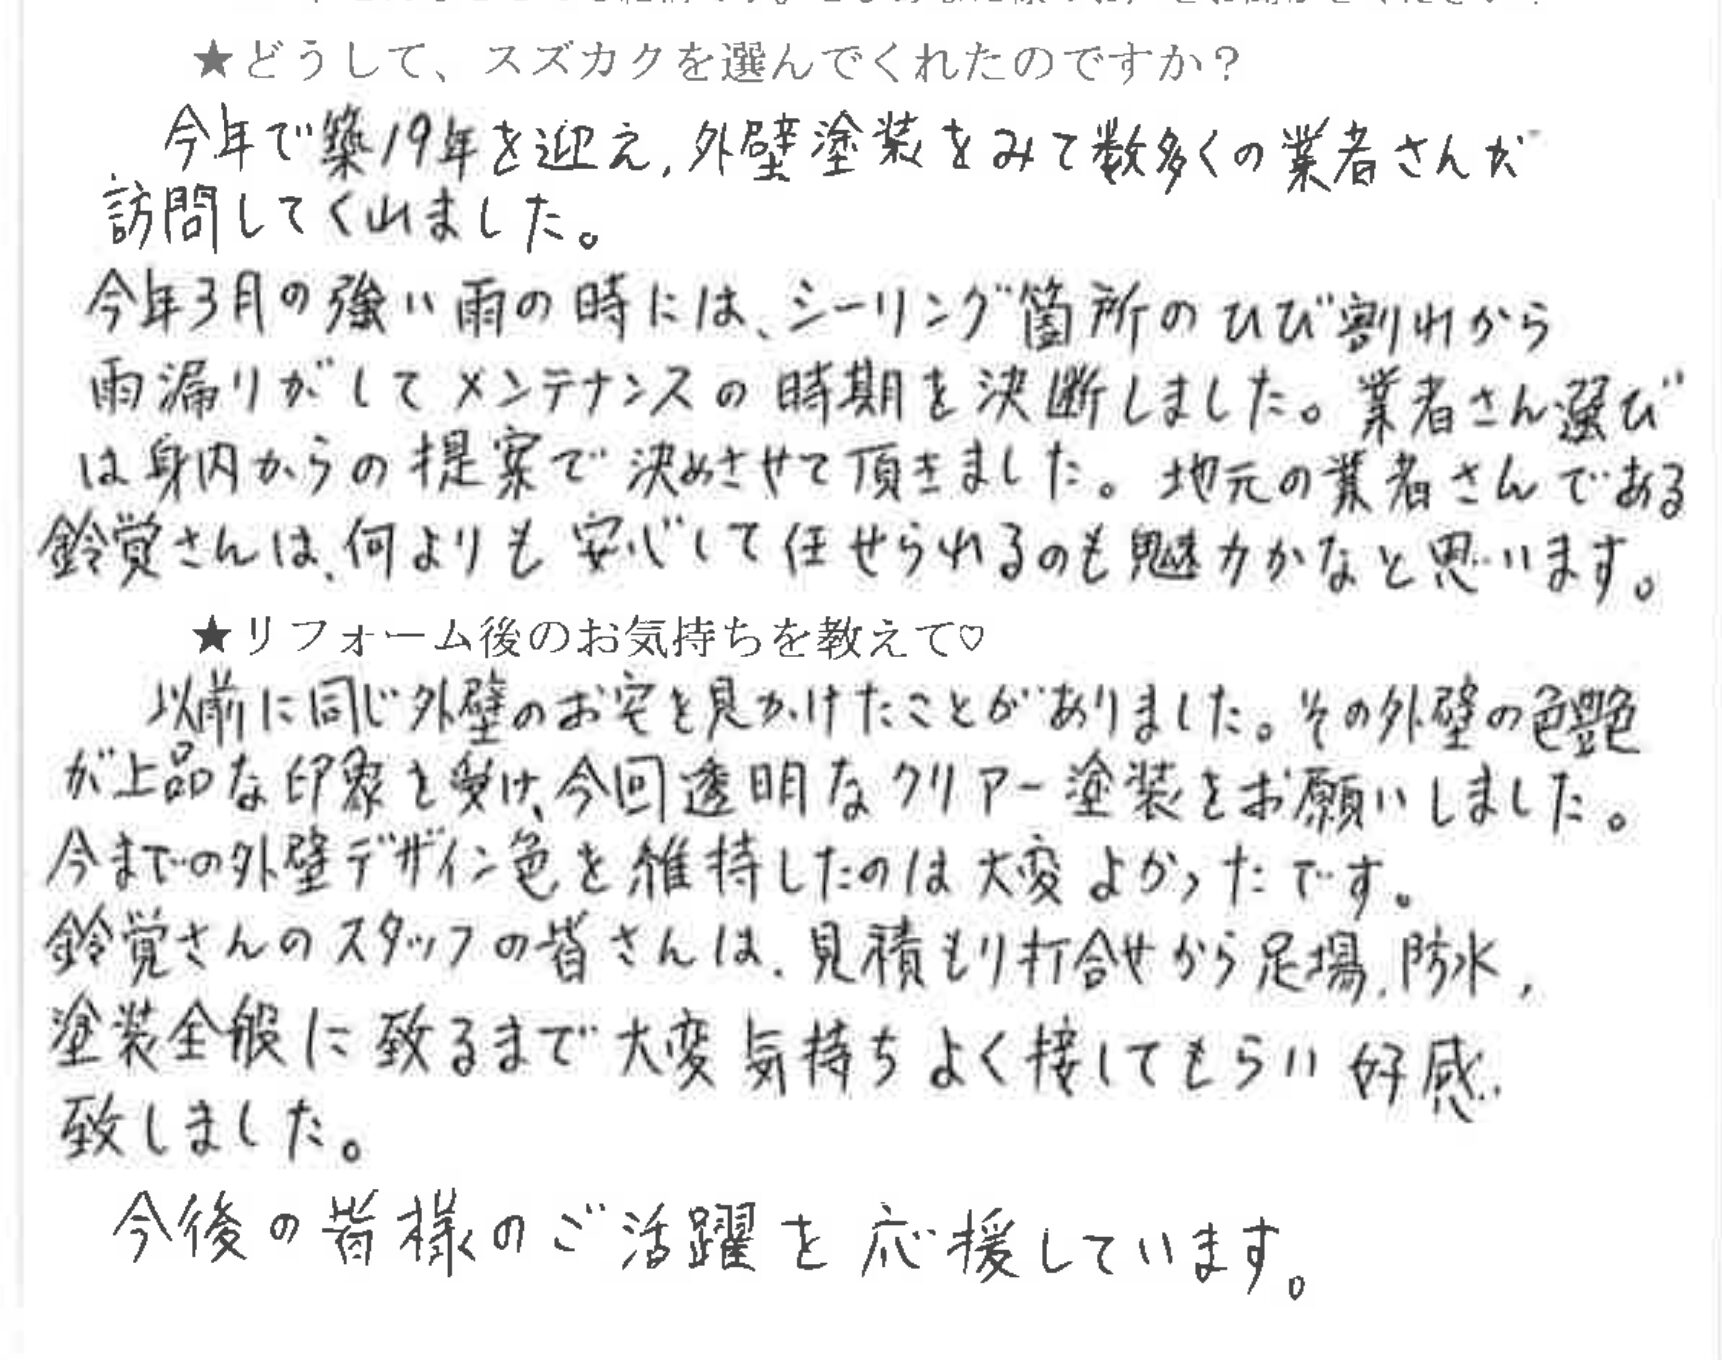 ★どうして、スズカクを選んでくれたのですか？
今年で築19年を迎え、外壁塗装をみて数多くの業者さんが
訪問してくれました。
今年3月の強い雨の時には、シーリング箇所のひび割れから
雨漏りがしてメンテナンスの時期を決断しました。業者さん選び
は身内からの提案で決めさせて頂きました。地元の業者さんである
鈴覚さんは、何よりも安心して任せられるのも魅力かなと思います。
★リフォーム後のお気持ちを教えて♡
以前に同じ外壁のお宅を見かけたことがありました。その外壁の色艶
が上品な印象を受け、今回透明なクリアー塗装をお願いしました。
今までの外壁デザイン色を維持したのは大変よかったです。
鈴覚さんのスタッフの皆さんは、見積もり打合せから足場、防水、
塗装全般に致るまで大変気持ちよく接してもらい好感
致しました。
今後の皆様のご活躍を応援しています。